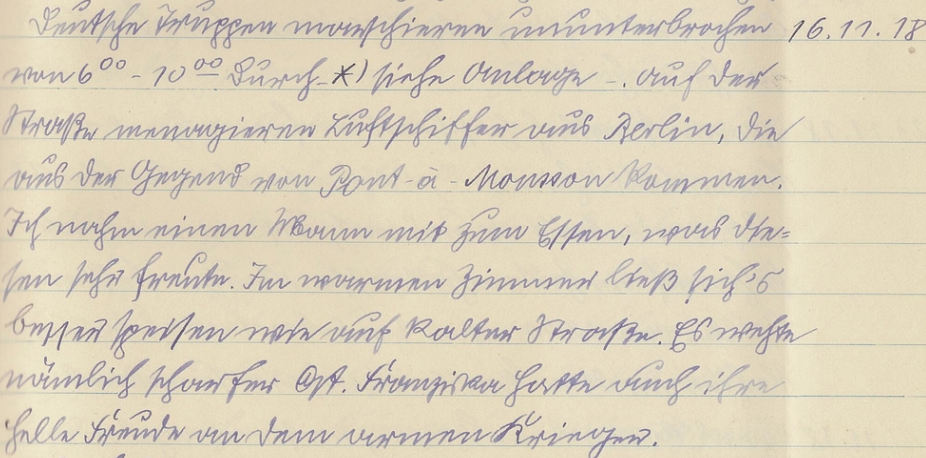 Deutsche Truppen marschieren ununterbrochen 16.11.18
von 6⁰⁰ - 10⁰⁰ durch - *) siehe Anlage -. Auf der
Straße menagieren Luftschiffer aus Berlin, die
aus der Gegend von Pont-à-Mousson kommen.
Ich nahm einen Mann mit zum Essen, was die=
sen sehr freute. Im warmen Zimmer ließ sich's
besser speisen wie auf kalter Straße. Es wehte
nämlich scharfer Ost. Franziska hatte auch ihre
helle Freude an dem armen Krieger.